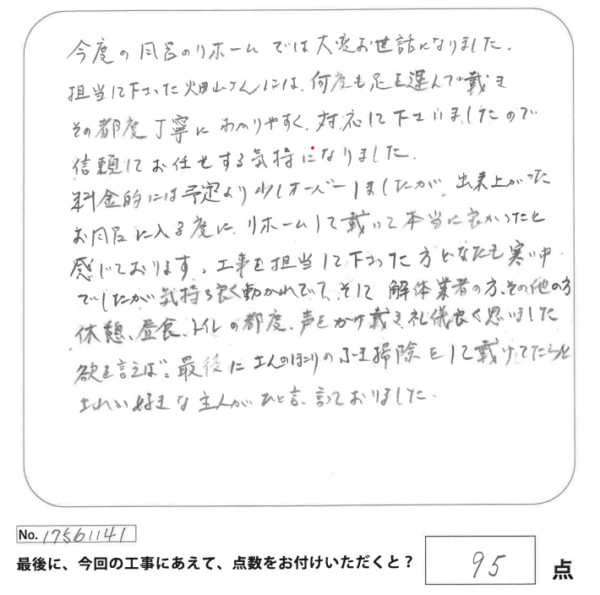 今度の風呂のリホームでは大変お世話になりました。
担当して下さった畑山さんには、何度も足を運んで戴き
その都度丁寧にわかりやすく、対応して下さいましたので
信頼してお任せする気持になりました。
料金的には予定より少しオーバーしましたが、出来上がった
お風呂に入る度に、リホームして戴いて本当に良かったと
感じております。工事を担当して下さった方どなたも寒い中
でしたが気持ち良く動かれでいて、そして解体業者の方、その他の方
休憩、昼食、トイレの都度、声をかけ戴き礼儀良く思いました
欲を言えば、最後に のほこりのふき掃除をして戴けてたらと
きれい好きな主人がひと言、言っておりました。
No. 17561141
最後に、今回の工事にあえて、点数をお付けいただくと？ 95 点